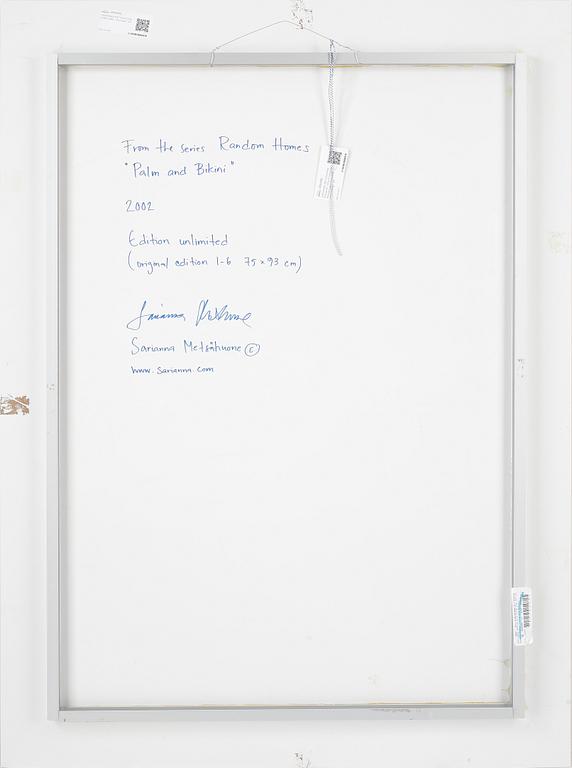 From the series Random Homes
"Palm and Bikini"
2002
Edition unlimited
(original edition 1-6 75 x 93 cm)
Sarianna Metsähuone ©
www.sarianna.com